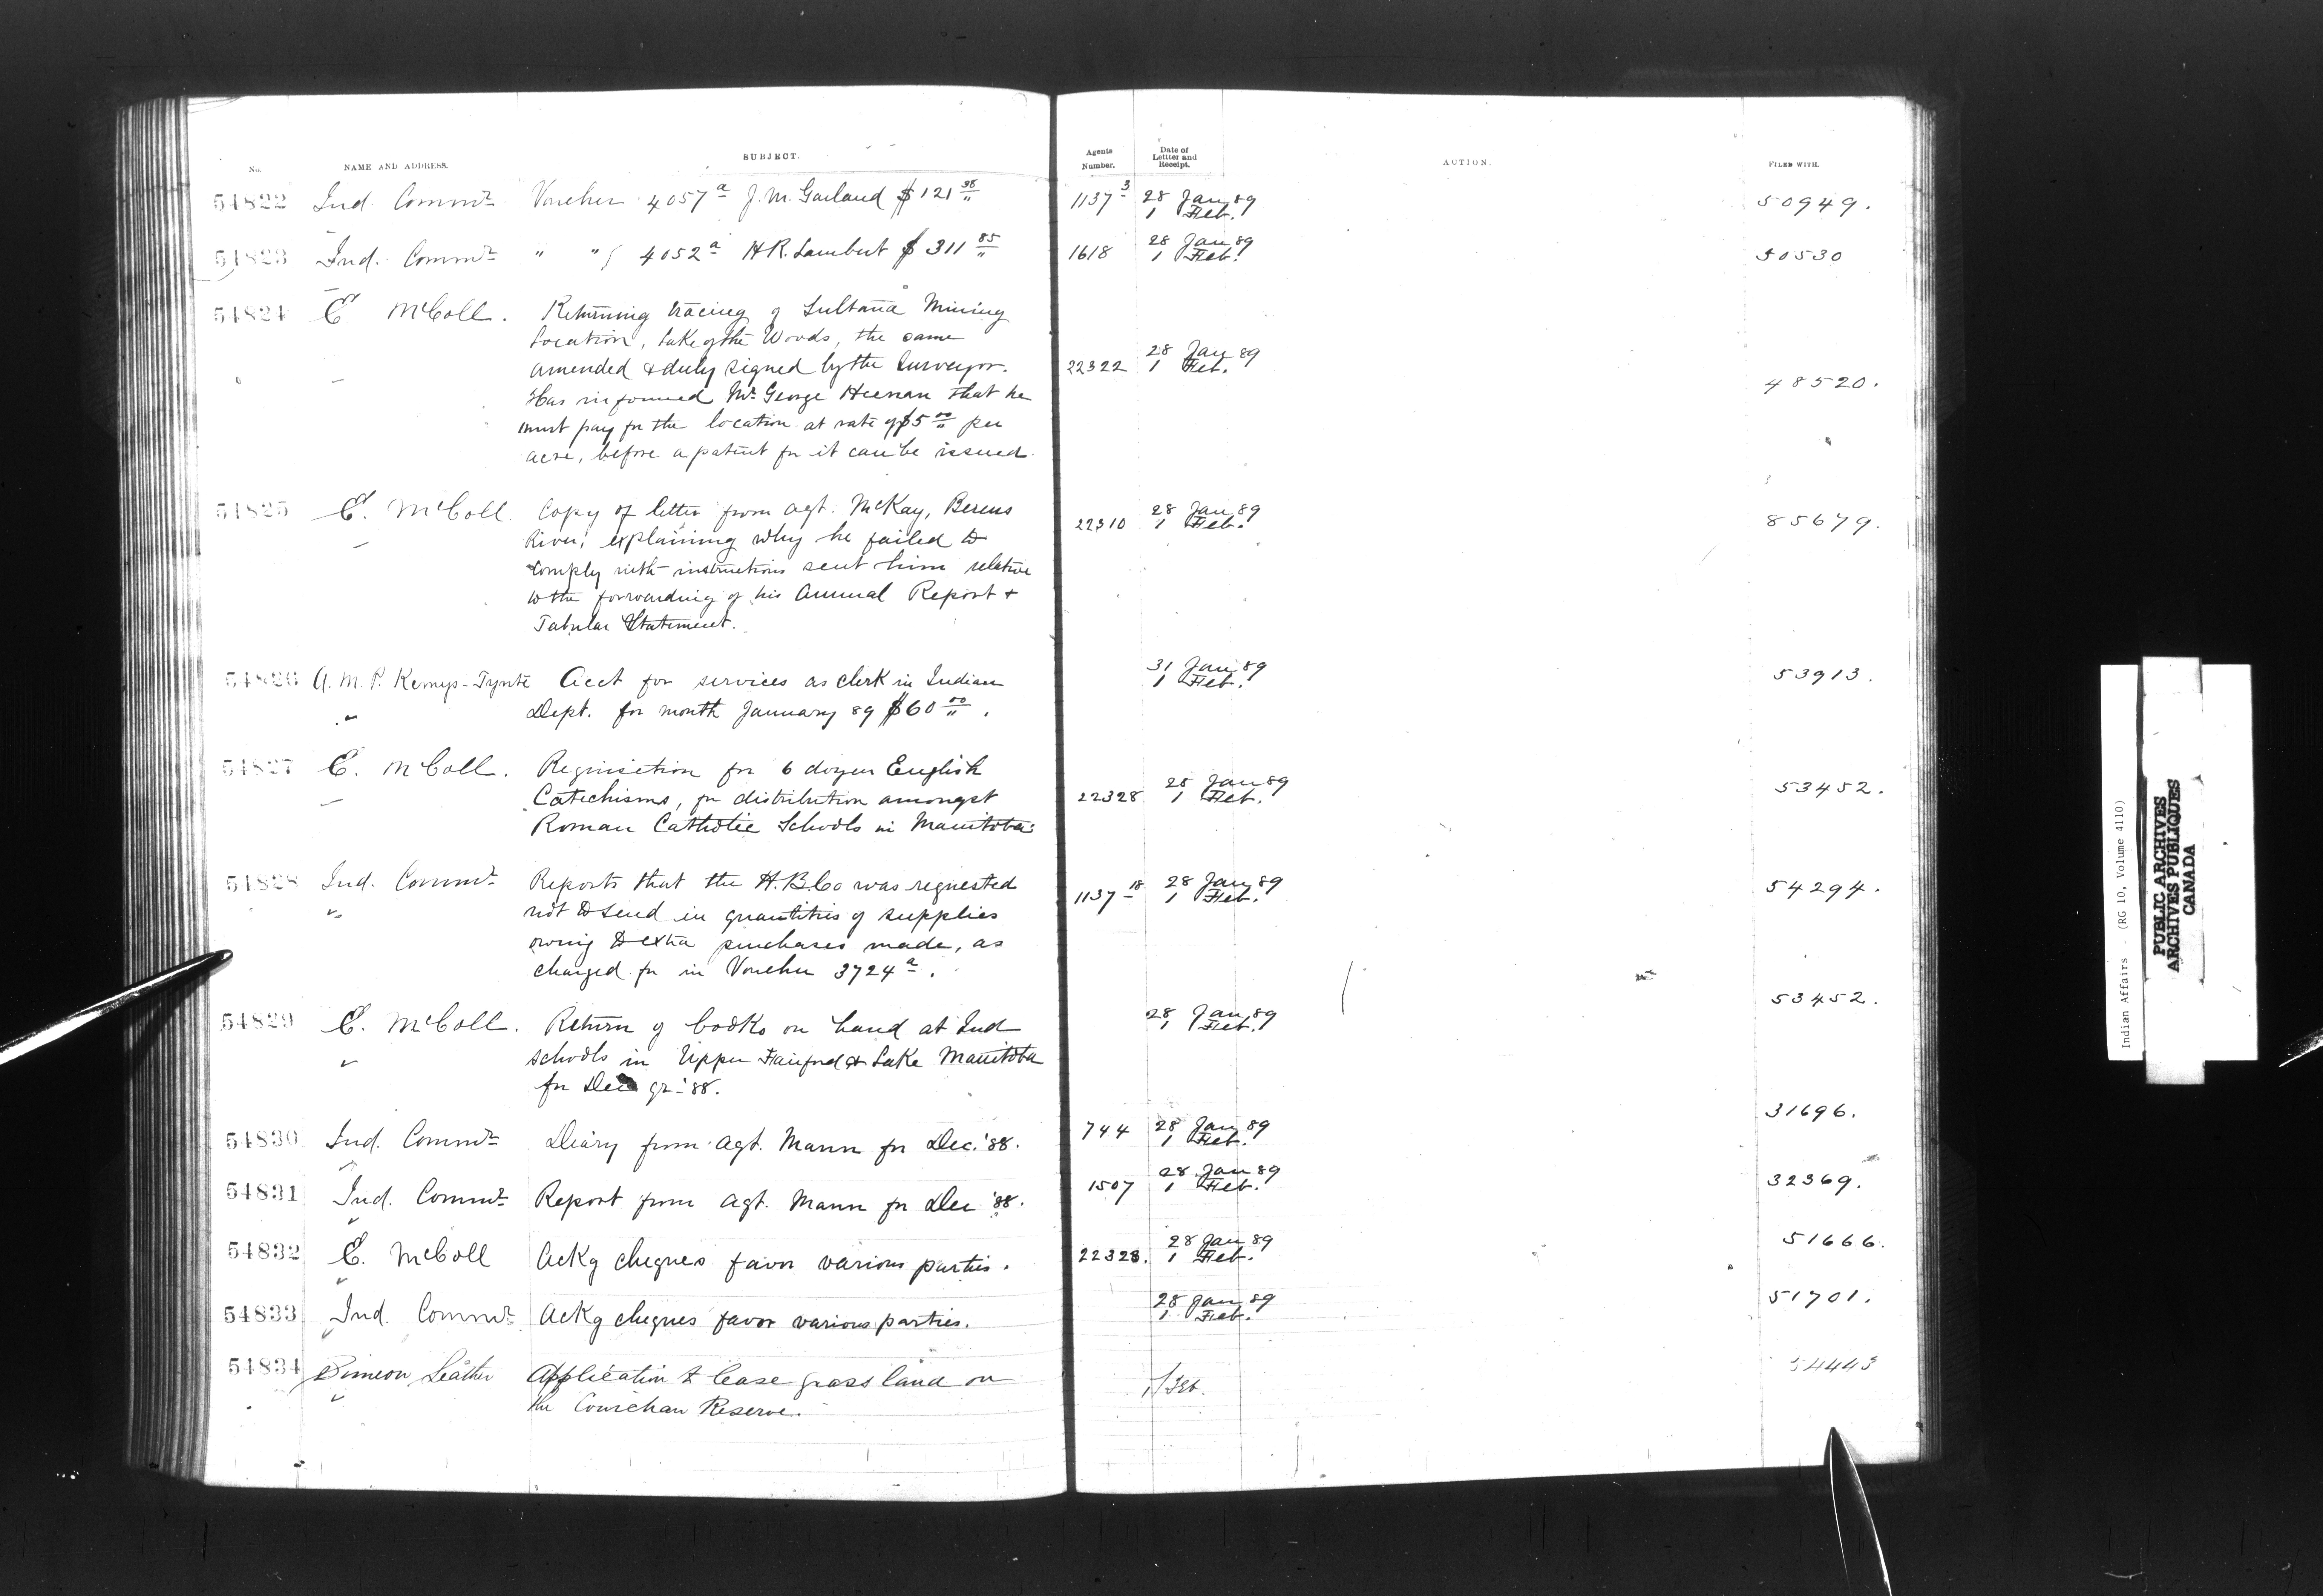 No. NAME AND ADDRESS. SUBJECT. Agents Number. Date of Letter and Receipt. ACTION. FILED WITH.
54822 Ind. Commr Voucher 4057a J. M. Garland $121 98 1137 3 28 Jan 89 50949.
1 Feb.
54823 Ind. Commr " " 4052a H R. Lambert $311 85 1618 28 Jan 89 50530
1 Feb.
54824 E McColl. Returning tracing of Sultana Mining
Location, Lake of the Woods, the same
amended & duly signed by the Surveyor. 22322 28 Jan 89
1 Feb.
Has informed Mr. George Heenan that he 48520.
must pay for the location at rate of $5 00 per
acre, before a patent for it can be issued.
54825 E. McColl. Copy of letter from Agt. McKay, Berens 22310 28 Jan 89 85679.
1 Feb.
River, explaining why he failed to
comply with instructions sent him relative
to the forwarding of his Annual Report &
Tabular Statement.
54826 A. M. P. Kemys-Tynte Acct for services as clerk in Indian 31 Jan 89 53913.
1 Feb.
Dept. for month January 89 $60 00.
54827 E. McColl. Requisition for 6 dozen English 28 Jan 89 53452.
Catechisms, for distribution amongst 22328 1 Feb.
Roman Catholic Schools in Manitoba.
54828 Ind. Commr Reports that the H. B. Co was requested 1137 18 28 Jan 89 54294.
1 Feb.
not to send in quantities of supplies
owing to extra purchases made, as
charged for in Voucher 3724a.
54829 E. McColl. Return of books on hand at Ind 28 Jan 89 53452.
1 Feb.
schools in Upper Fairford & Lake Manitoba
for Dec qr. '88.
54830 Ind. Commr Diary from Agt. Mann for Dec. '88. 744 28 Jan 89 31696.
1 Feb.
54831 Ind. Commr Report from Agt. Mann for Dec '88. 1507 28 Jan 89 32369.
1 Feb.
54832 E. McColl Ackg cheques favor various parties. 22328. 28 Jan 89 51666.
1 Feb.
54833 Ind. Commr Ackg cheques favor various parties. 28 Jan 89 51701.
1 Feb.
54834 Simeon Leather Application to lease grass land on 1/Feb. 54443
the Cowichan Reserve.
Indian Affairs - (RG 10, Volume 4110)
PUBLIC ARCHIVES
ARCHIVES PUBLIQUES
CANADA